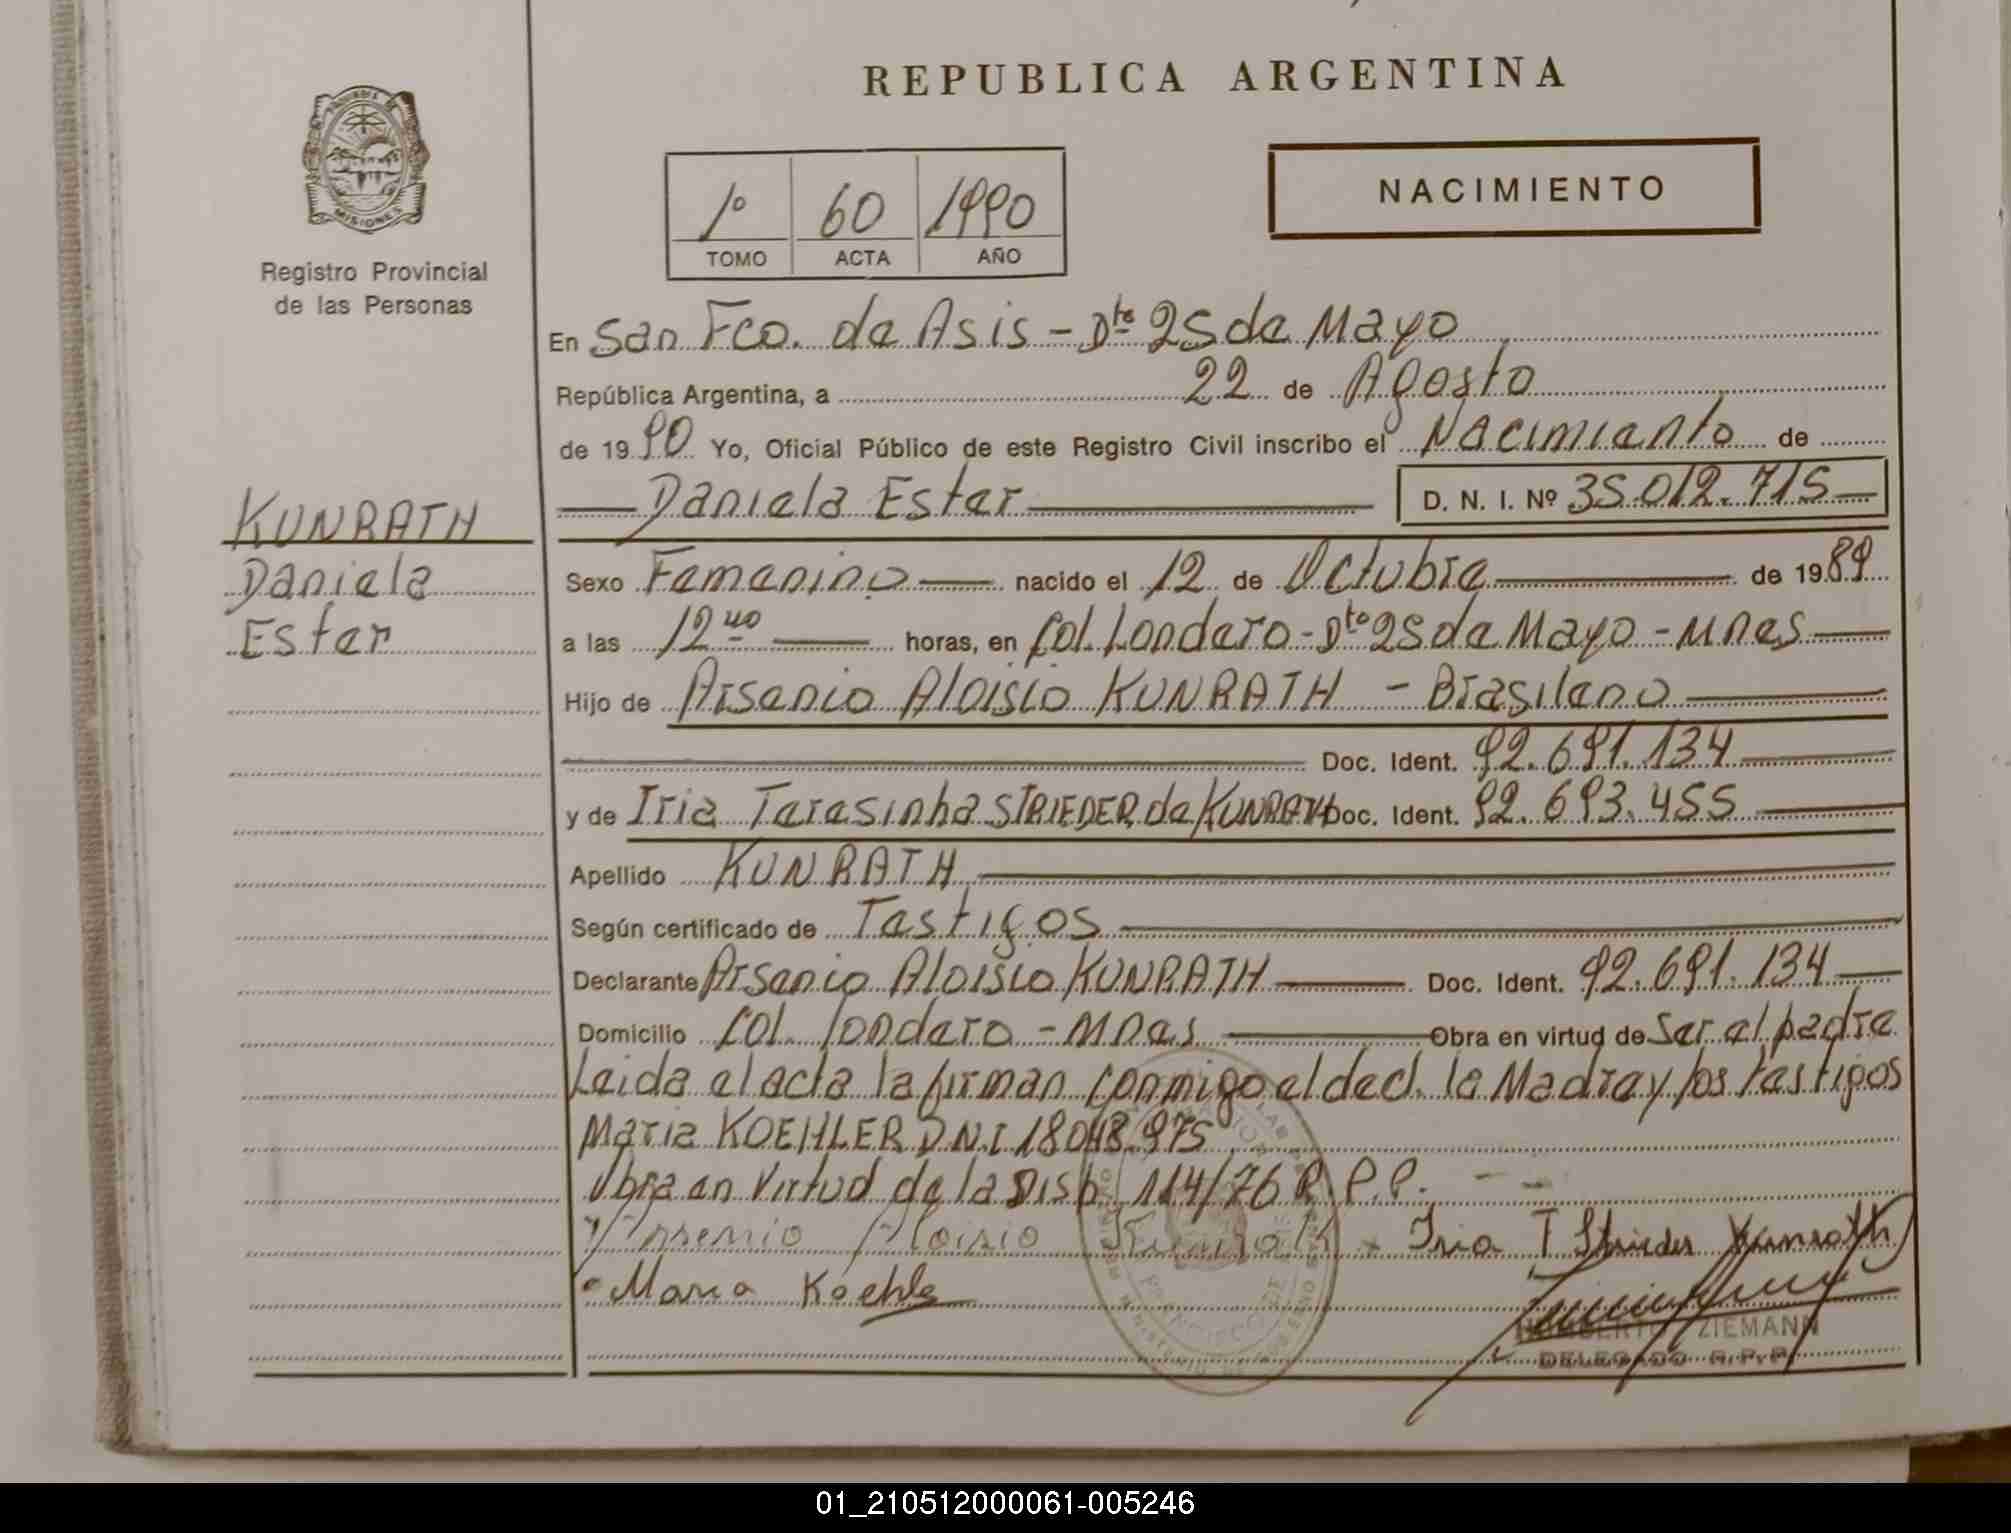 REPUBLICA ARGENTINA
MISIONES
Registro Provincial
de las Personas
1º 60 1990
TOMO ACTA AÑO
NACIMIENTO
En San Fco. de Asis - Dto 25 de Mayo
República Argentina, a 22 de Agosto
de 1990 Yo, Oficial Público de este Registro Civil inscribo el Nacimiento de
Daniela Ester D. N. I. Nº 35.012.715
KUNRATH
Daniela
Ester
Sexo Femenino nacido el 12 de Octubre de 1989
a las 12 40 horas, en Col. Londero - Dto 25 de Mayo - Mnes
Hijo de Arsenio Aloisio KUNRATH - Brasileno
Doc. Ident. 92.691.134
y de Iria Teresinha STRIEDER de KUNRATH Doc. Ident. 92.693.455
Apellido KUNRATH
Según certificado de Testigos
Declarante Arsenio Aloisio KUNRATH Doc. Ident. 92.691.134
Domicilio Col. Londero - Mnes Obra en virtud de ser el padre
Leida el acta la firman conmigo el decl. la Madre y los testigos
Maria KOEHLER D.N.I 18.043.975
Obra en Virtud de la Disp. 114/76 R.P.P.
Arsenio Aloisio Kunrath Iria T Strieder Kunrath
Maria Koehle
HUMBERTO ZIEMANN
DELEGADO R.P.P.
01_210512000061-005246